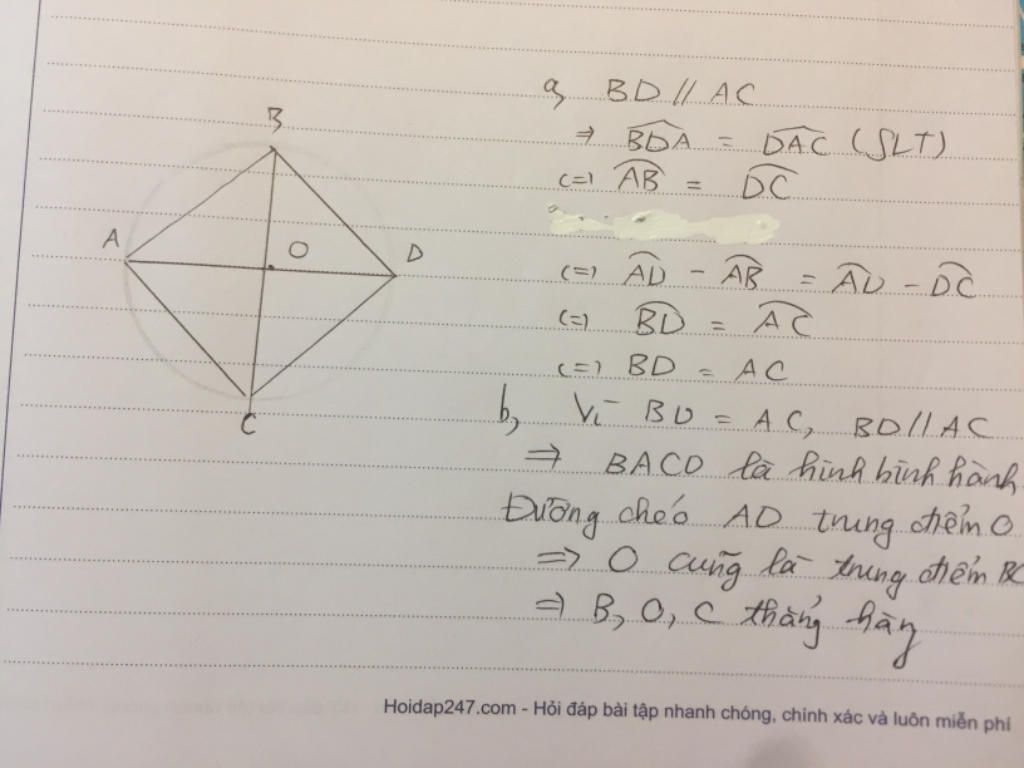 B
A
O
D
C
a, BD // AC
⇒ BDA = DAC (SLT)
(=) AB = DC
(=) AD - AB = AD - DC
(=) BD = AC
(=) BD = AC
b, Vì BD = AC, BD // AC
⇒ BACD là hình bình hành
Đường chéo AD trung điểm O
=> O cũng là trung điểm BC
⇒ B, O, C thẳng hàng
Hoidap247.com - Hỏi đáp bài tập nhanh chóng, chính xác và luôn miễn phí